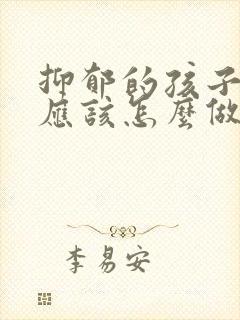 抑郁的孩子
應該怎麼做
李易安